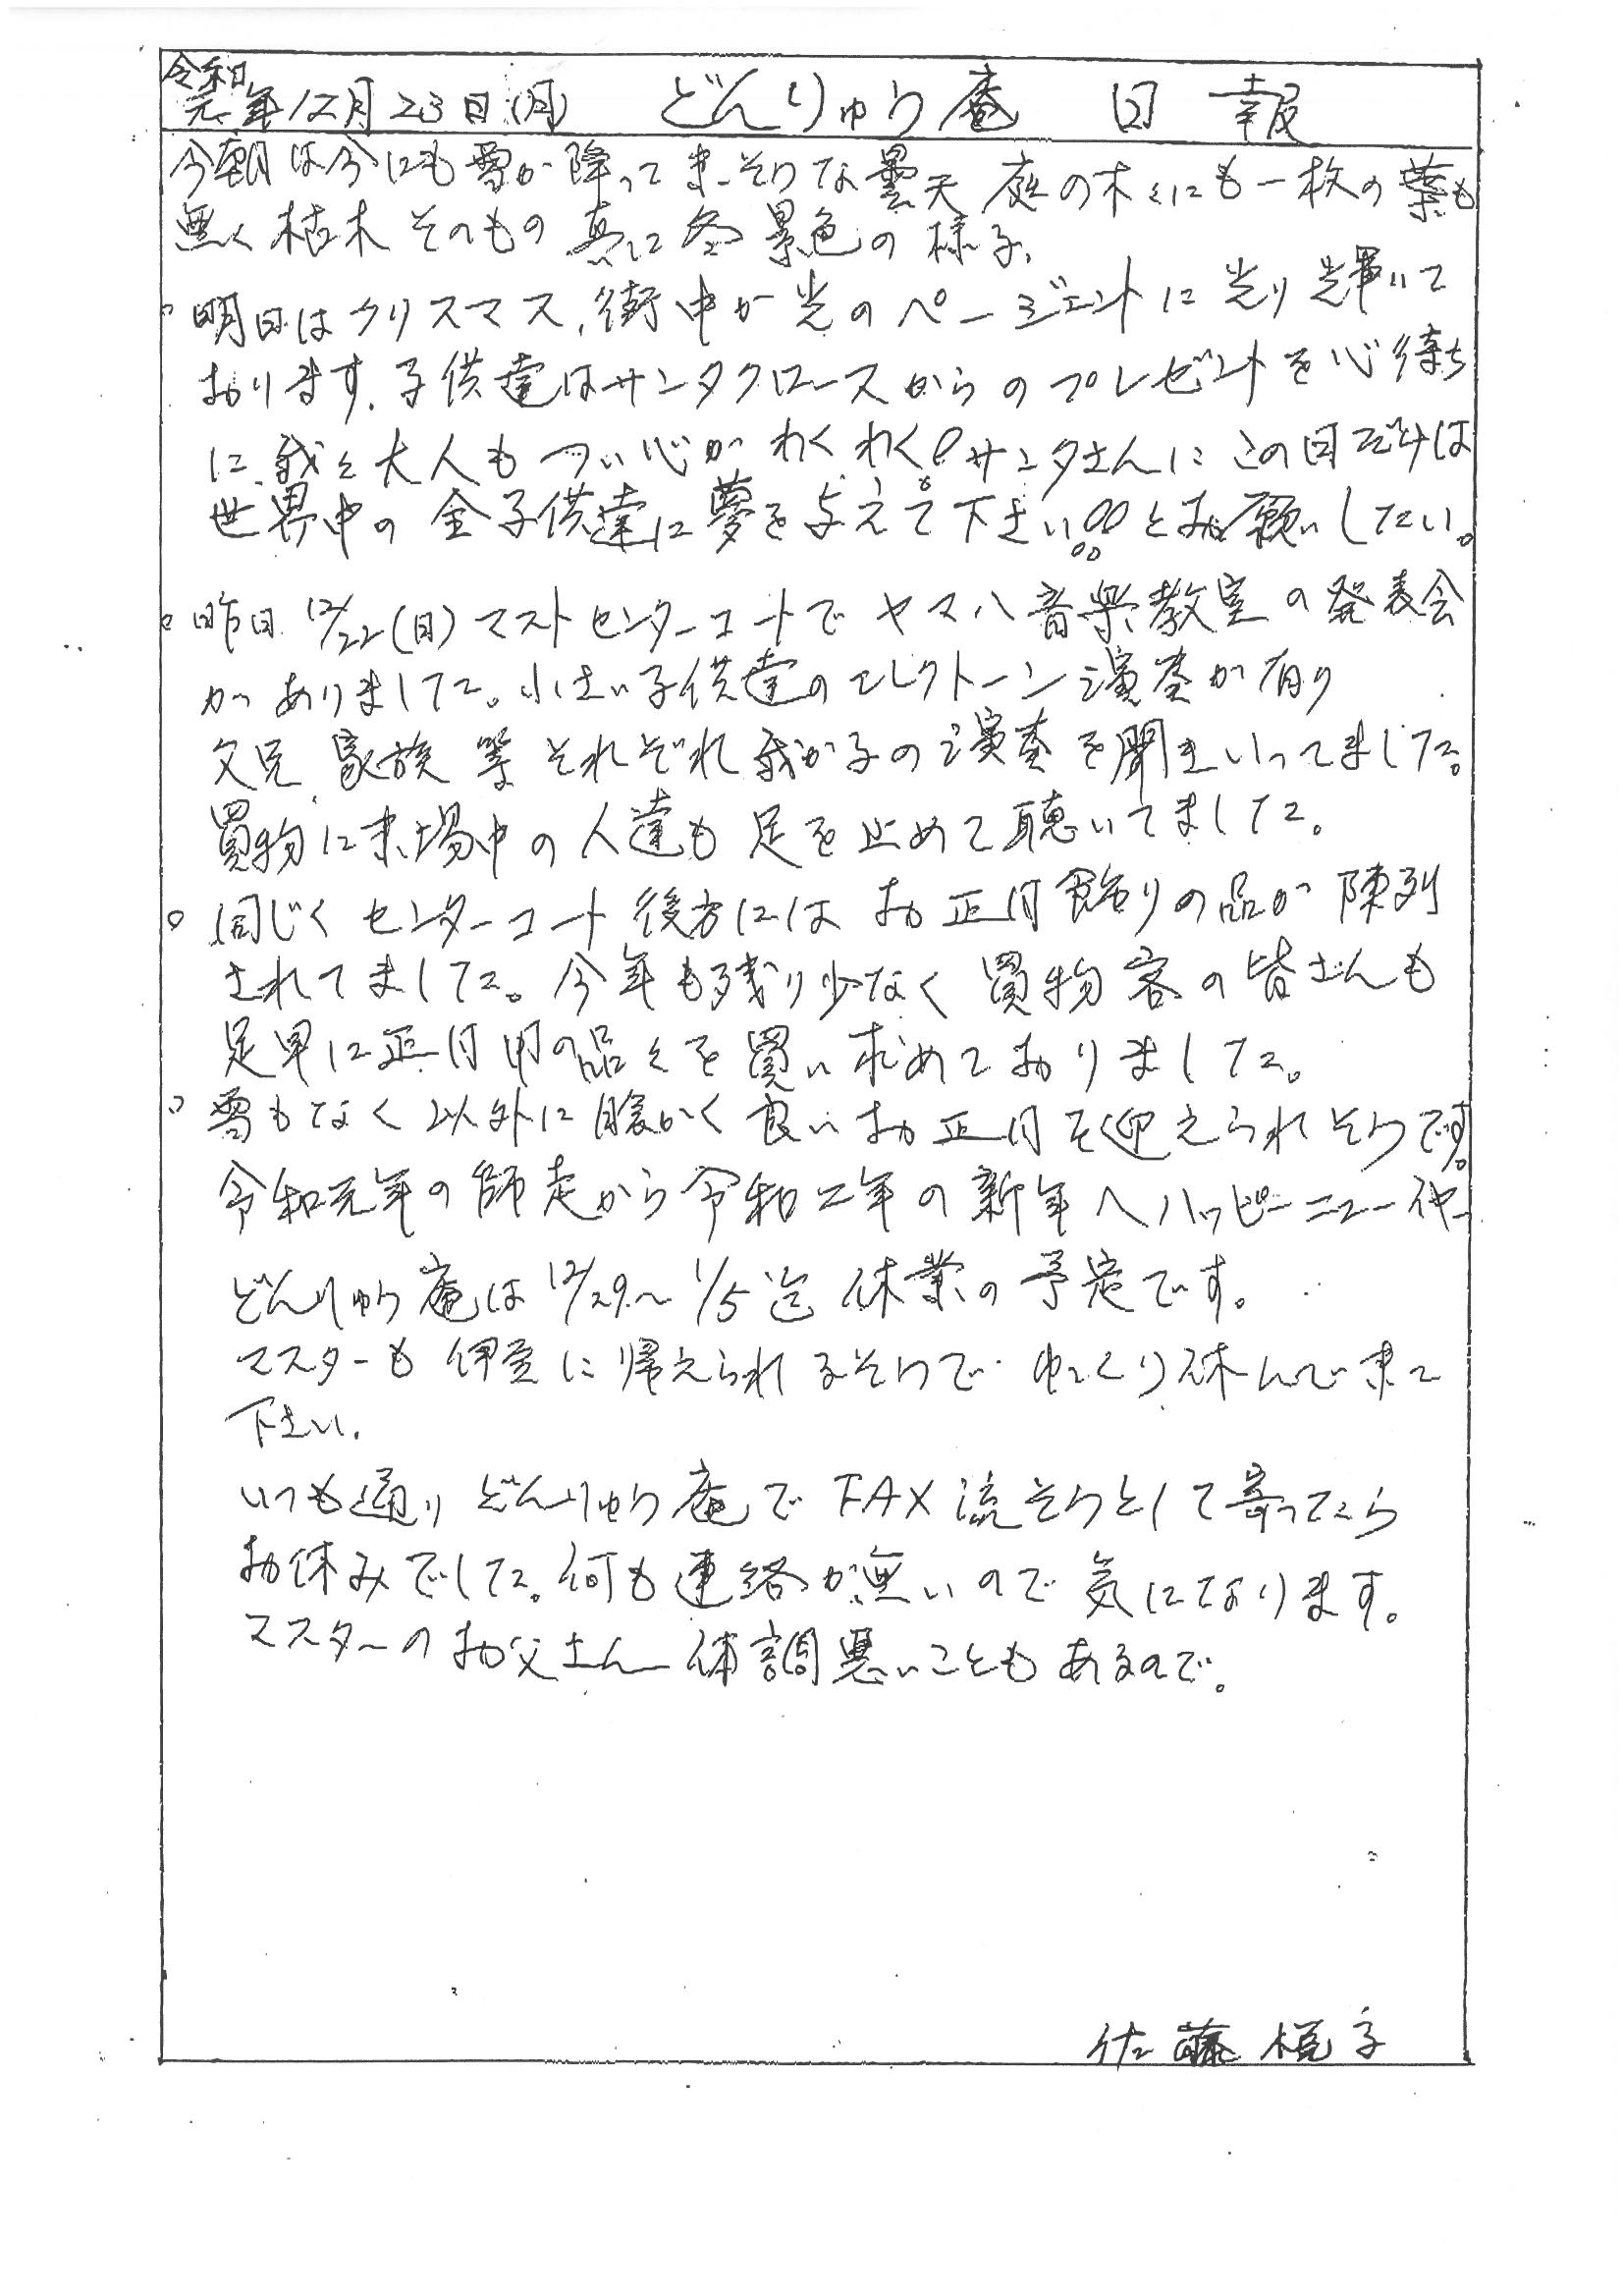 令和
元年12月23日(月) どんりゅう庵 日報
今朝は今にも雪が降って来そうな曇天 庭の木々にも一枚の葉も
無く枯木そのもの真に冬景色の様子、
○明日はクリスマス、街中が光のページェントに光り輝いて
おります、子供達はサンタクロースからのプレゼントを心待ち
に、我々大人もつい心がわくわく!サンタさんにこの日だけは
世界中の全子供達に夢を与えて下さい!!とお願いしたい。
○昨日12/22(日)マストセンターコートでヤマハ音楽教室の発表会
がありました。小さい子供達のエレクトーン演奏が有り
父兄、家族等それぞれ我が子の演奏を聞きいってました。
買物に来場中の人達も足を止めて聴いてました。
○同じくセンターコート後方にはお正月飾りの品が陳列
されてました。今年も残り少なく買物客の皆さんも
足早に正月用の品々を買い求めておりました。
○雪もなく以外に暖かく良いお正月を迎えられそうです。
令和元年の師走から令和二年の新年へハッピーニューイヤー
どんりゅう庵は12/29~1/5迄休業の予定です。
マスターも伊豆に帰えられるそうで ゆっくり休んで来て
下さい、
いつも通りどんりゅう庵でFAX流そうとして寄ってたら
お休みでした。何も連絡が無いので気になります。
マスターのお父さん体調悪いこともあるので。
佐藤悦子